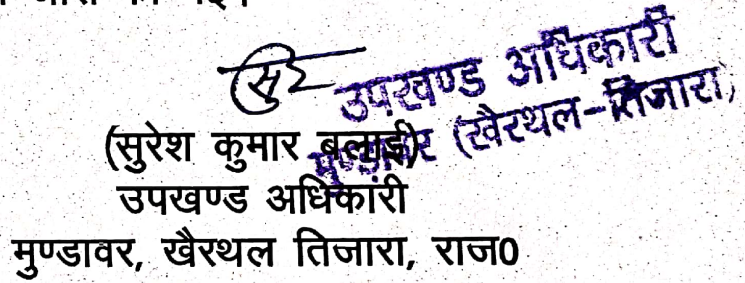 सुर
उपखण्ड अधिकारी
मुण्डावर (खैरथल-तिजारा)
(सुरेश कुमार बलाई)
उपखण्ड अधिकारी
मुण्डावर, खैरथल तिजारा, राज0